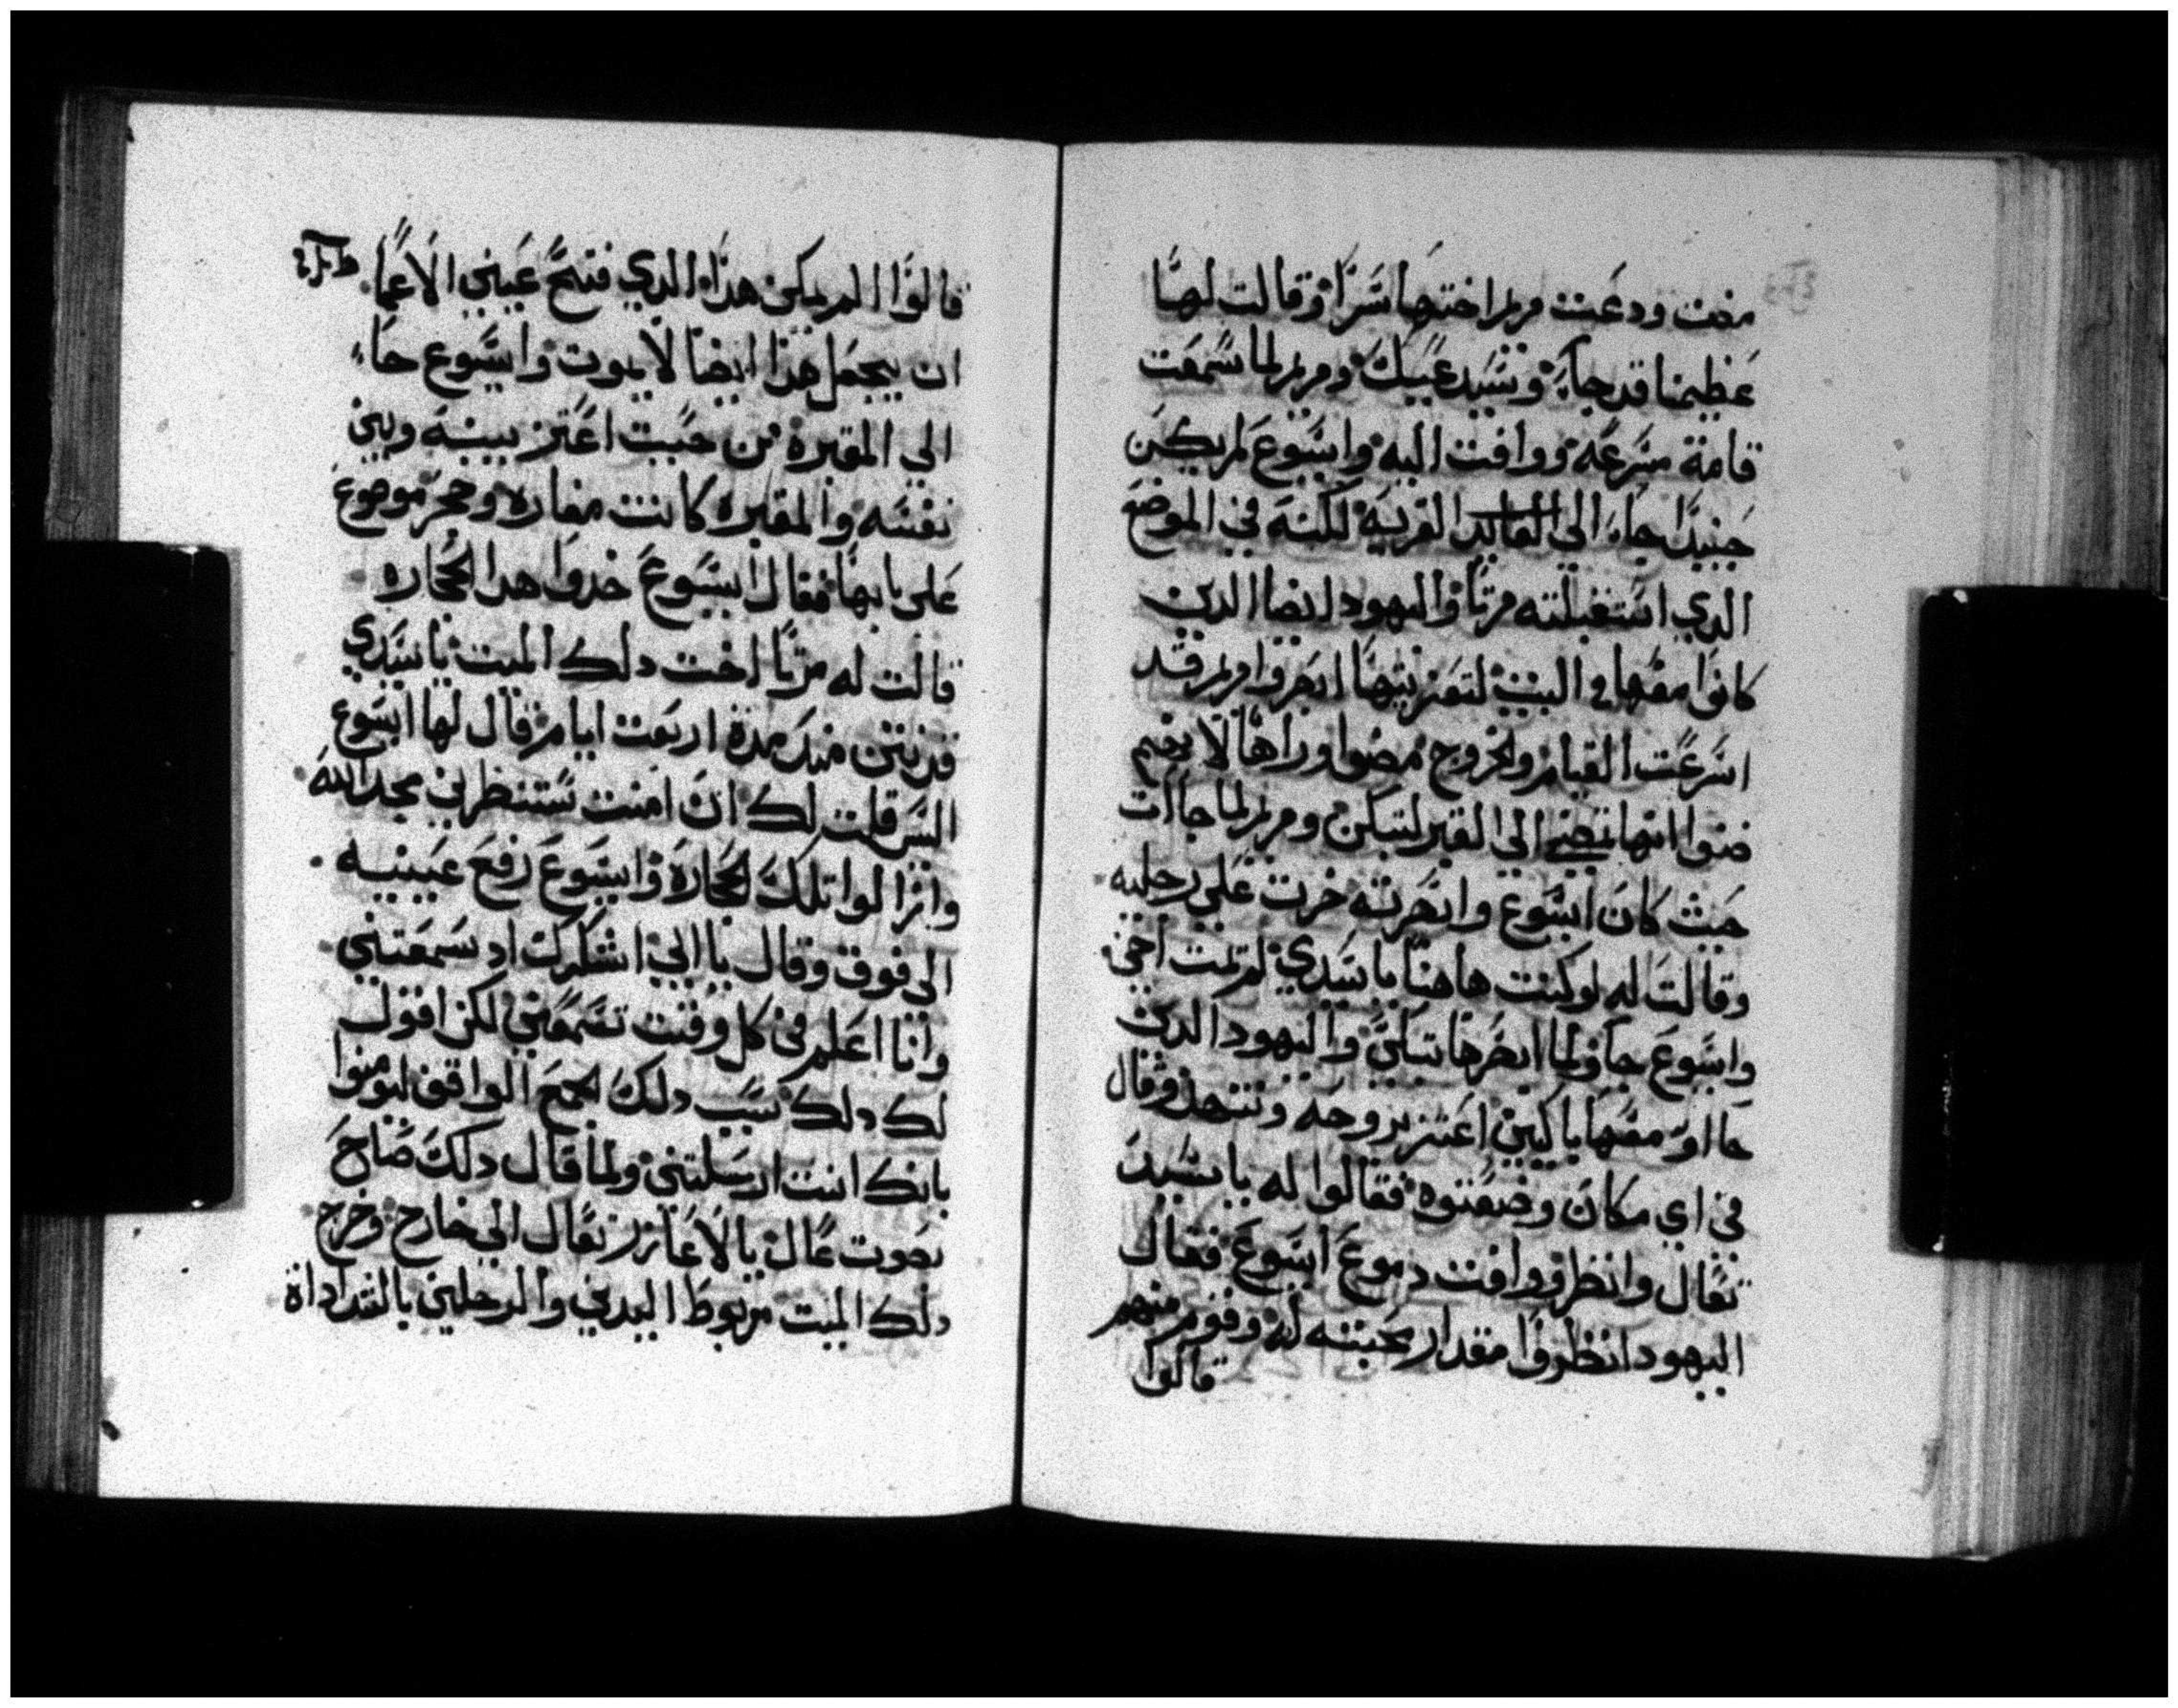 مضت ودعت مريم اختها سرا وقالت لها
عظيمنا قد جاء وسيدعيك ومريم لما سمعت
قامة مسرعه ووافت اليه وايسوع لم يكن
حينيدا جاء الى القريه لكنه في الموضع
الدي استقبلته مرتا واليهود ايضا الدين
كانوا معها في البيت لتعزيتها ابصروا مريم قد
اسرعت القيام والخروج مضوا وراها لانهم
ضنوا انها تمضي الى القبر لتبكي ومريم لما جاات
حيث كان ايسوع وابصرته خرت على رجليه
وقالت له لو كنت هاهنا يا سيدي لم تمت اخي
وايسوع جا ولما ابصرها تبكي واليهود الدين
جااو معها باكيين اعتز بروحه وتنهد وقال
في اي مكان وضعتوه فقالوا له يا سيد
تعال وانظر ووافت دموع ايسوع فقال
اليهود انظروا مقدار محبته له وقوم منهم
قالوا
قالوا الم يكن هدا الدي فتح عيني الاعما
ان يجعل هدا ايضا لا يموت وايسوع جاء
الى المقبره من حيت اعتز بينه وبين
نفسه والمقبره كانت مغاره وحجر موضوع
على بابها فقال ايسوع خدوا هدا الحجاره
قالت له مرتا اخت دلك الميت يا سيدي
قد نتن مند مدة اربعت ايام قال لها ايسوع
اليس قلت لك ان امنت ستنظري مجد الله
وازالوا تلك الحجاره وايسوع رفع عينيه
الى فوق وقال يا ابي اشكرك اد سمعتني
وانا اعلم في كل وقت تسمعني لكن اقول
لك دلك بسبب دلك الجمع الواقف ليومنوا
بانك انت ارسلتني ولما قال دلك صاح
بصوت عال يا لاعازر تعال الى خارج وخرج
دلك الميت مربوط اليدين والرجلين بالشداداة